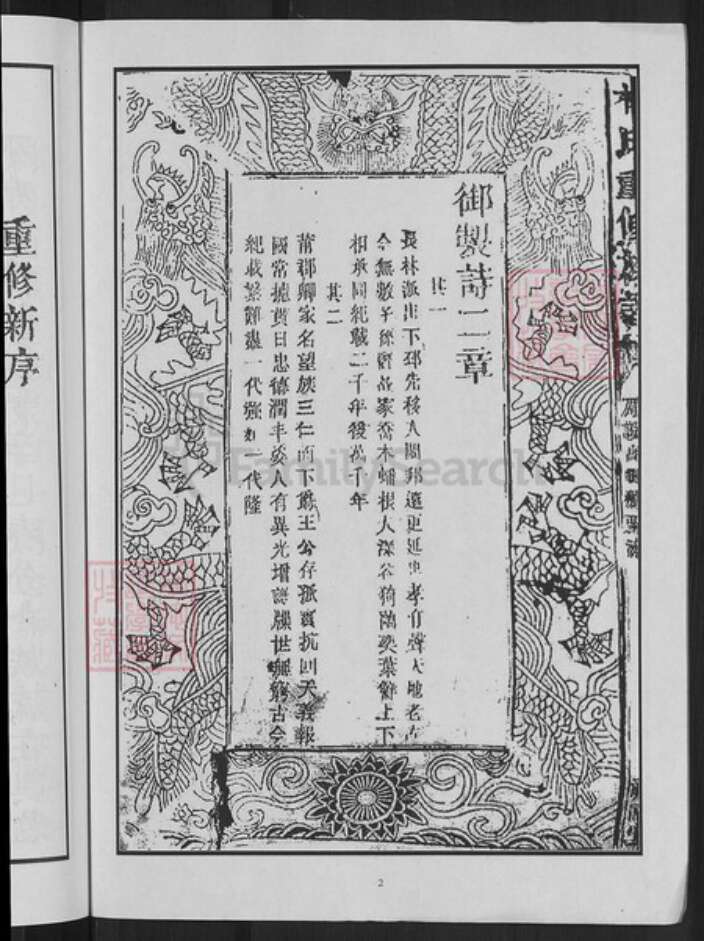 林氏重修
御製詩二章
其一
長林派出下邳先移入閩邦遠更延忠孝有聲天地老古
今無數子孫賢故家喬木蟠根大深谷猗蘭奕葉鮮上下
相承同紀載二千年後萬千年
其二
莆郡卿家名望族三仁而下爵王公存孤實抗回天義報
國常攄貫日忠德潤丰姿人有異光增譜牒世無窮古今
紀載繁雖盡一代強如一代隆
重修新序
2
FamilySearch